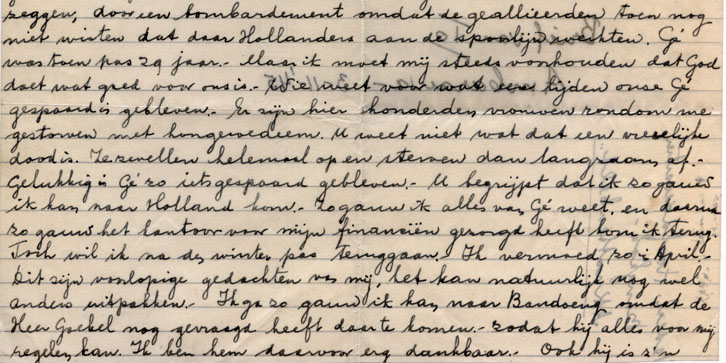 zeggen, door een bombardement omdat de geallieerden toen nog
niet wisten dat daar Hollanders aan de spoorlijn werkten. Gé
was toen pas 29 jaar.- Maar ik moet mij steeds voorhouden dat God
doet wat goed voor ons is.- Wie weet voor wat een lijden onse Gé
gespaard is gebleven.- Er zijn hier honderden vrouwen rondom me
gestorven met hongeroedeem. U weet niet wat dat een vreselijke
dood is. Ze zwellen helemaal op en sterven dan langzaam af.-
Gelukkig is Gé zo iets gespaard gebleven.- U begrijpt dat ik zo gauw
ik kan naar Holland kom.- Zo gauw ik alles van Gé weet, en daarna
zo gauw het kantoor voor mijn financiën gezorgd heeft kom ik terug.
Toch wil ik na de winter pas teruggaan. Ik vermoed, zo in April.-
Dit zijn voorlopige gedachten van mij, het kan natuurlijk nog wel
anders uitpakken.- Ik ga zo gauw ik kan naar Bandoeng omdat de
Heer Goekel nog gevraagd heeft daar te komen.- zodat hij alles voor mij
regelen kan. Ik ben hem daarvoor erg dankbaar.- Ook hij is z'n